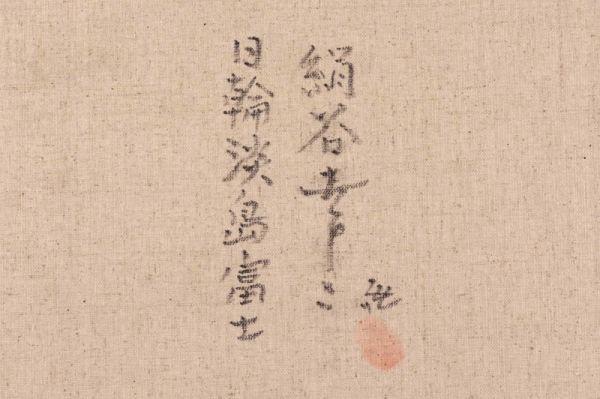 絹谷幸二
日輪淡島富士